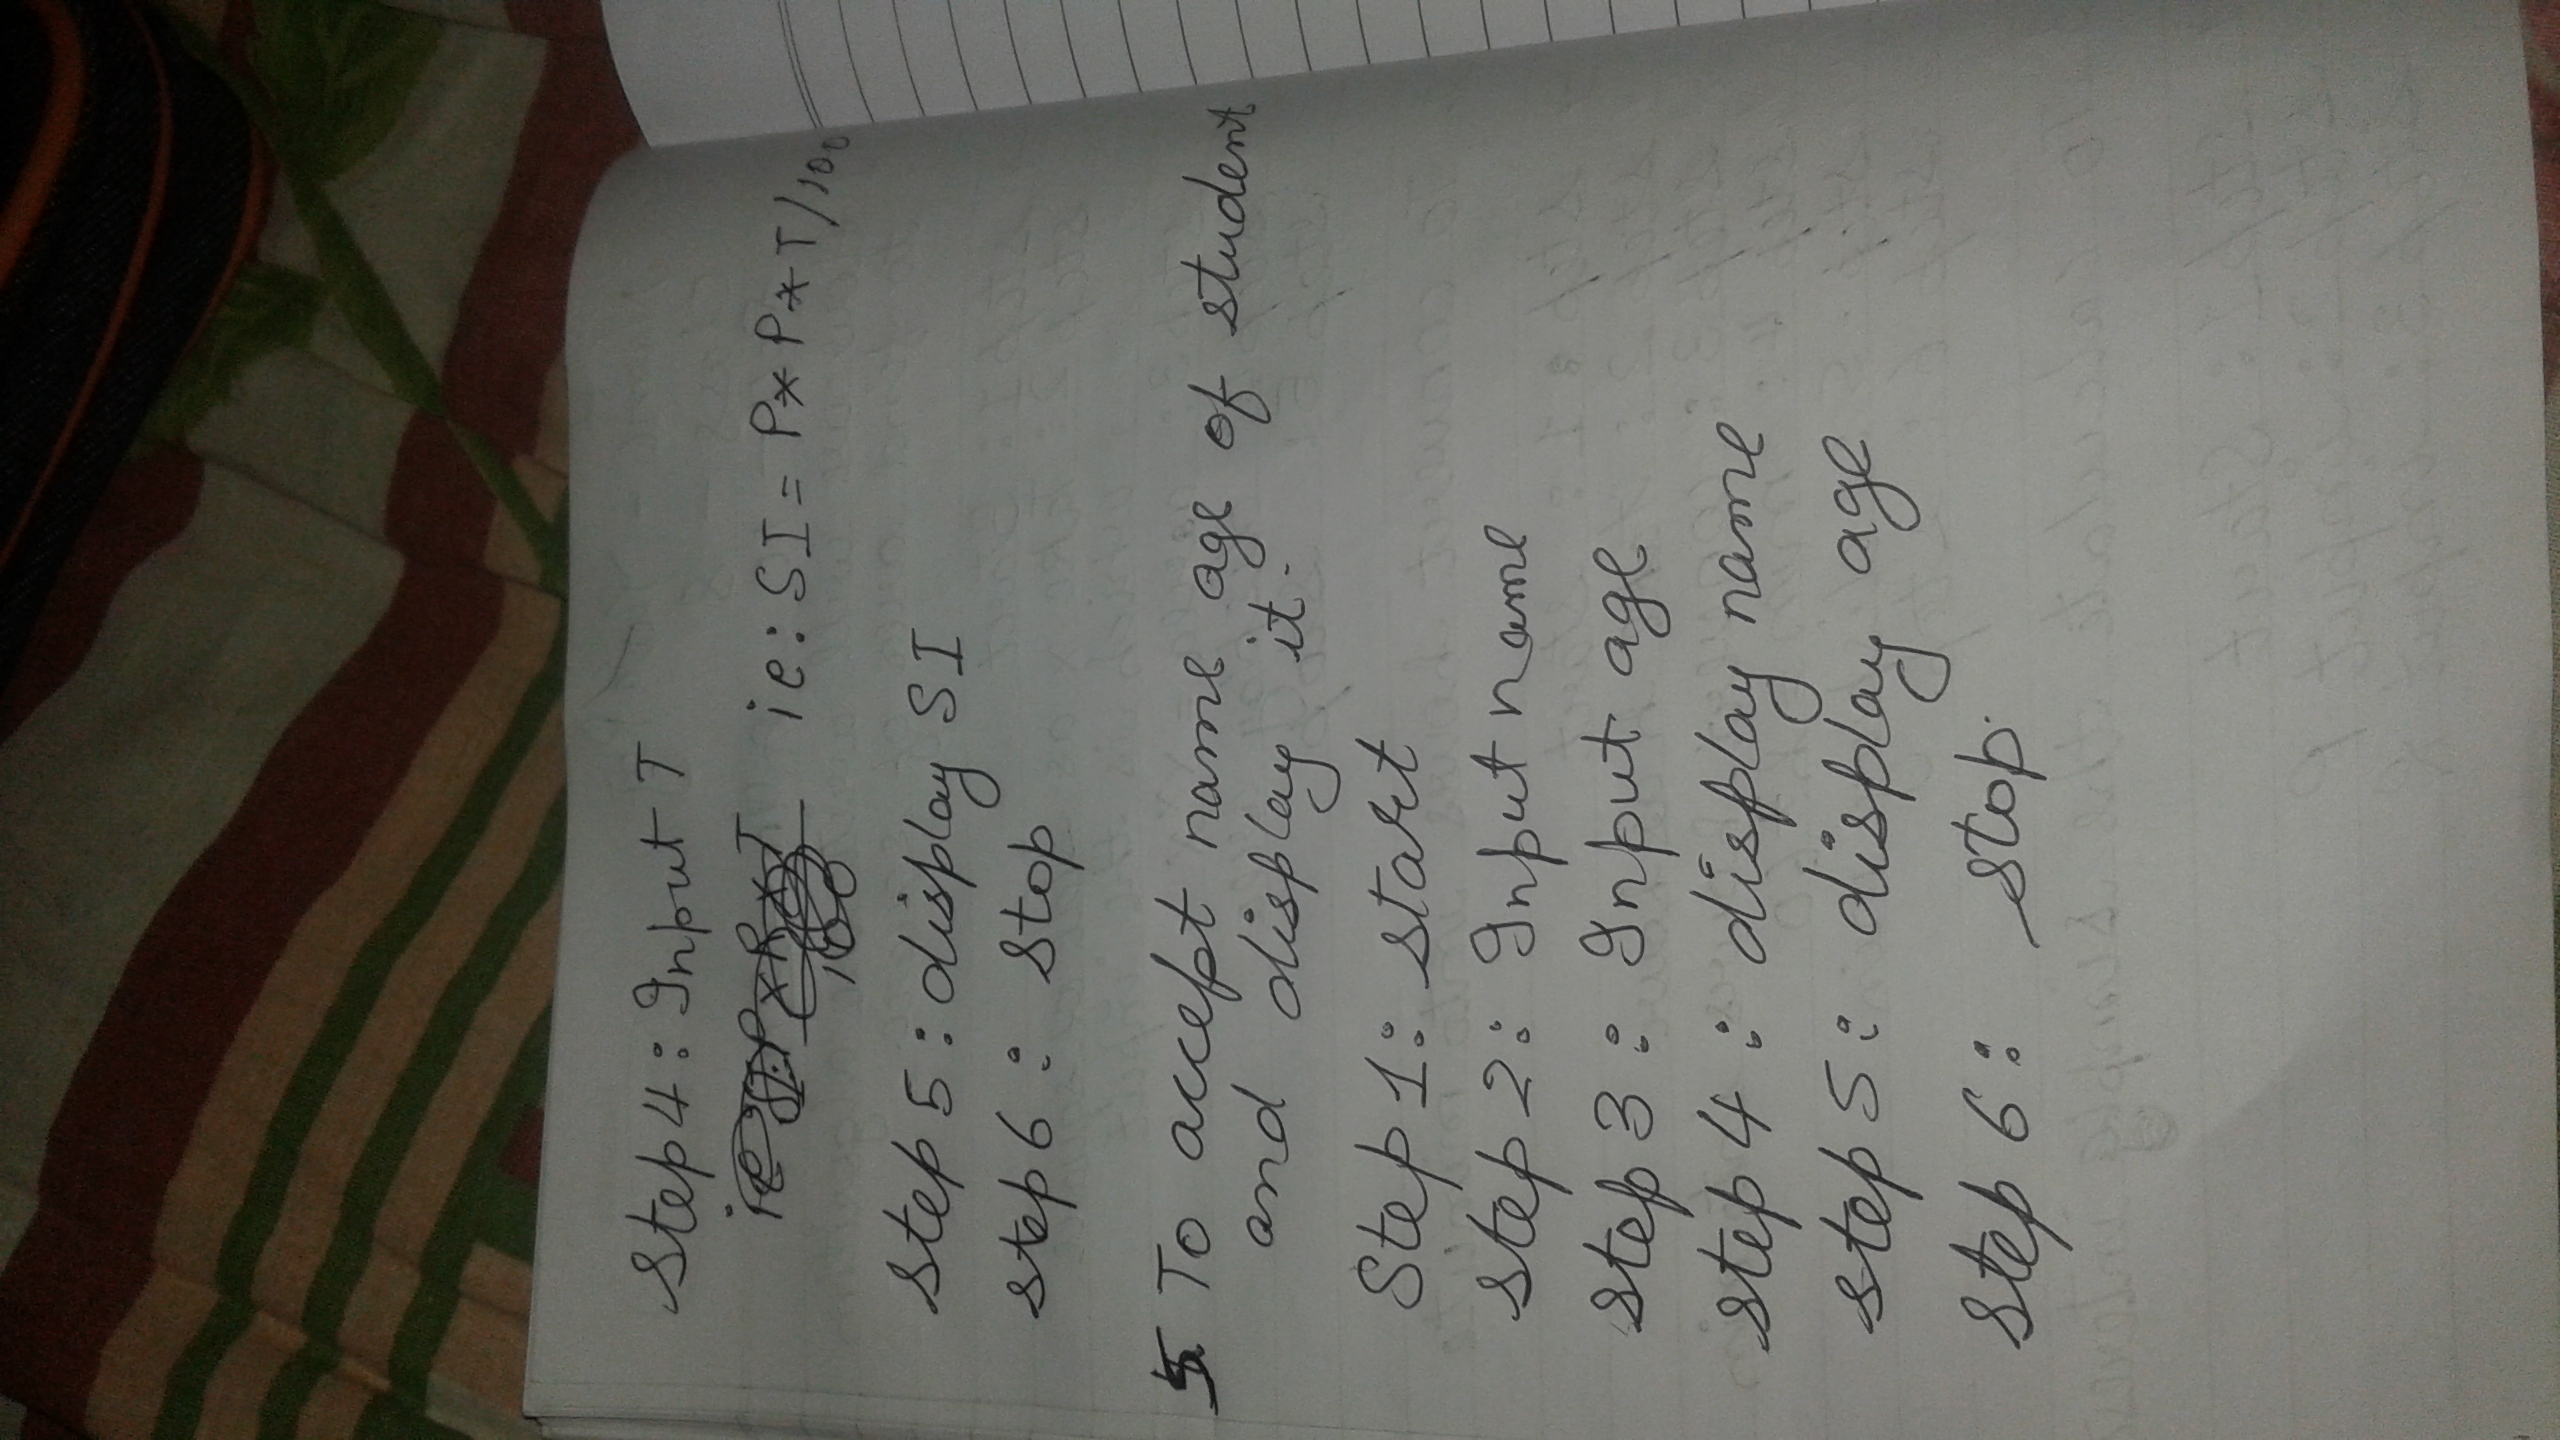 Step 4: Input T
ie SI P x R x T ie: SI = P* P * T/100
100
Step 5: display SI
step 6: Stop
5. To accept name age of student
and display it.
Step 1: start
step 2: Input name
step 3: Input age
step 4: display name
step 5: display age
step 6: stop.